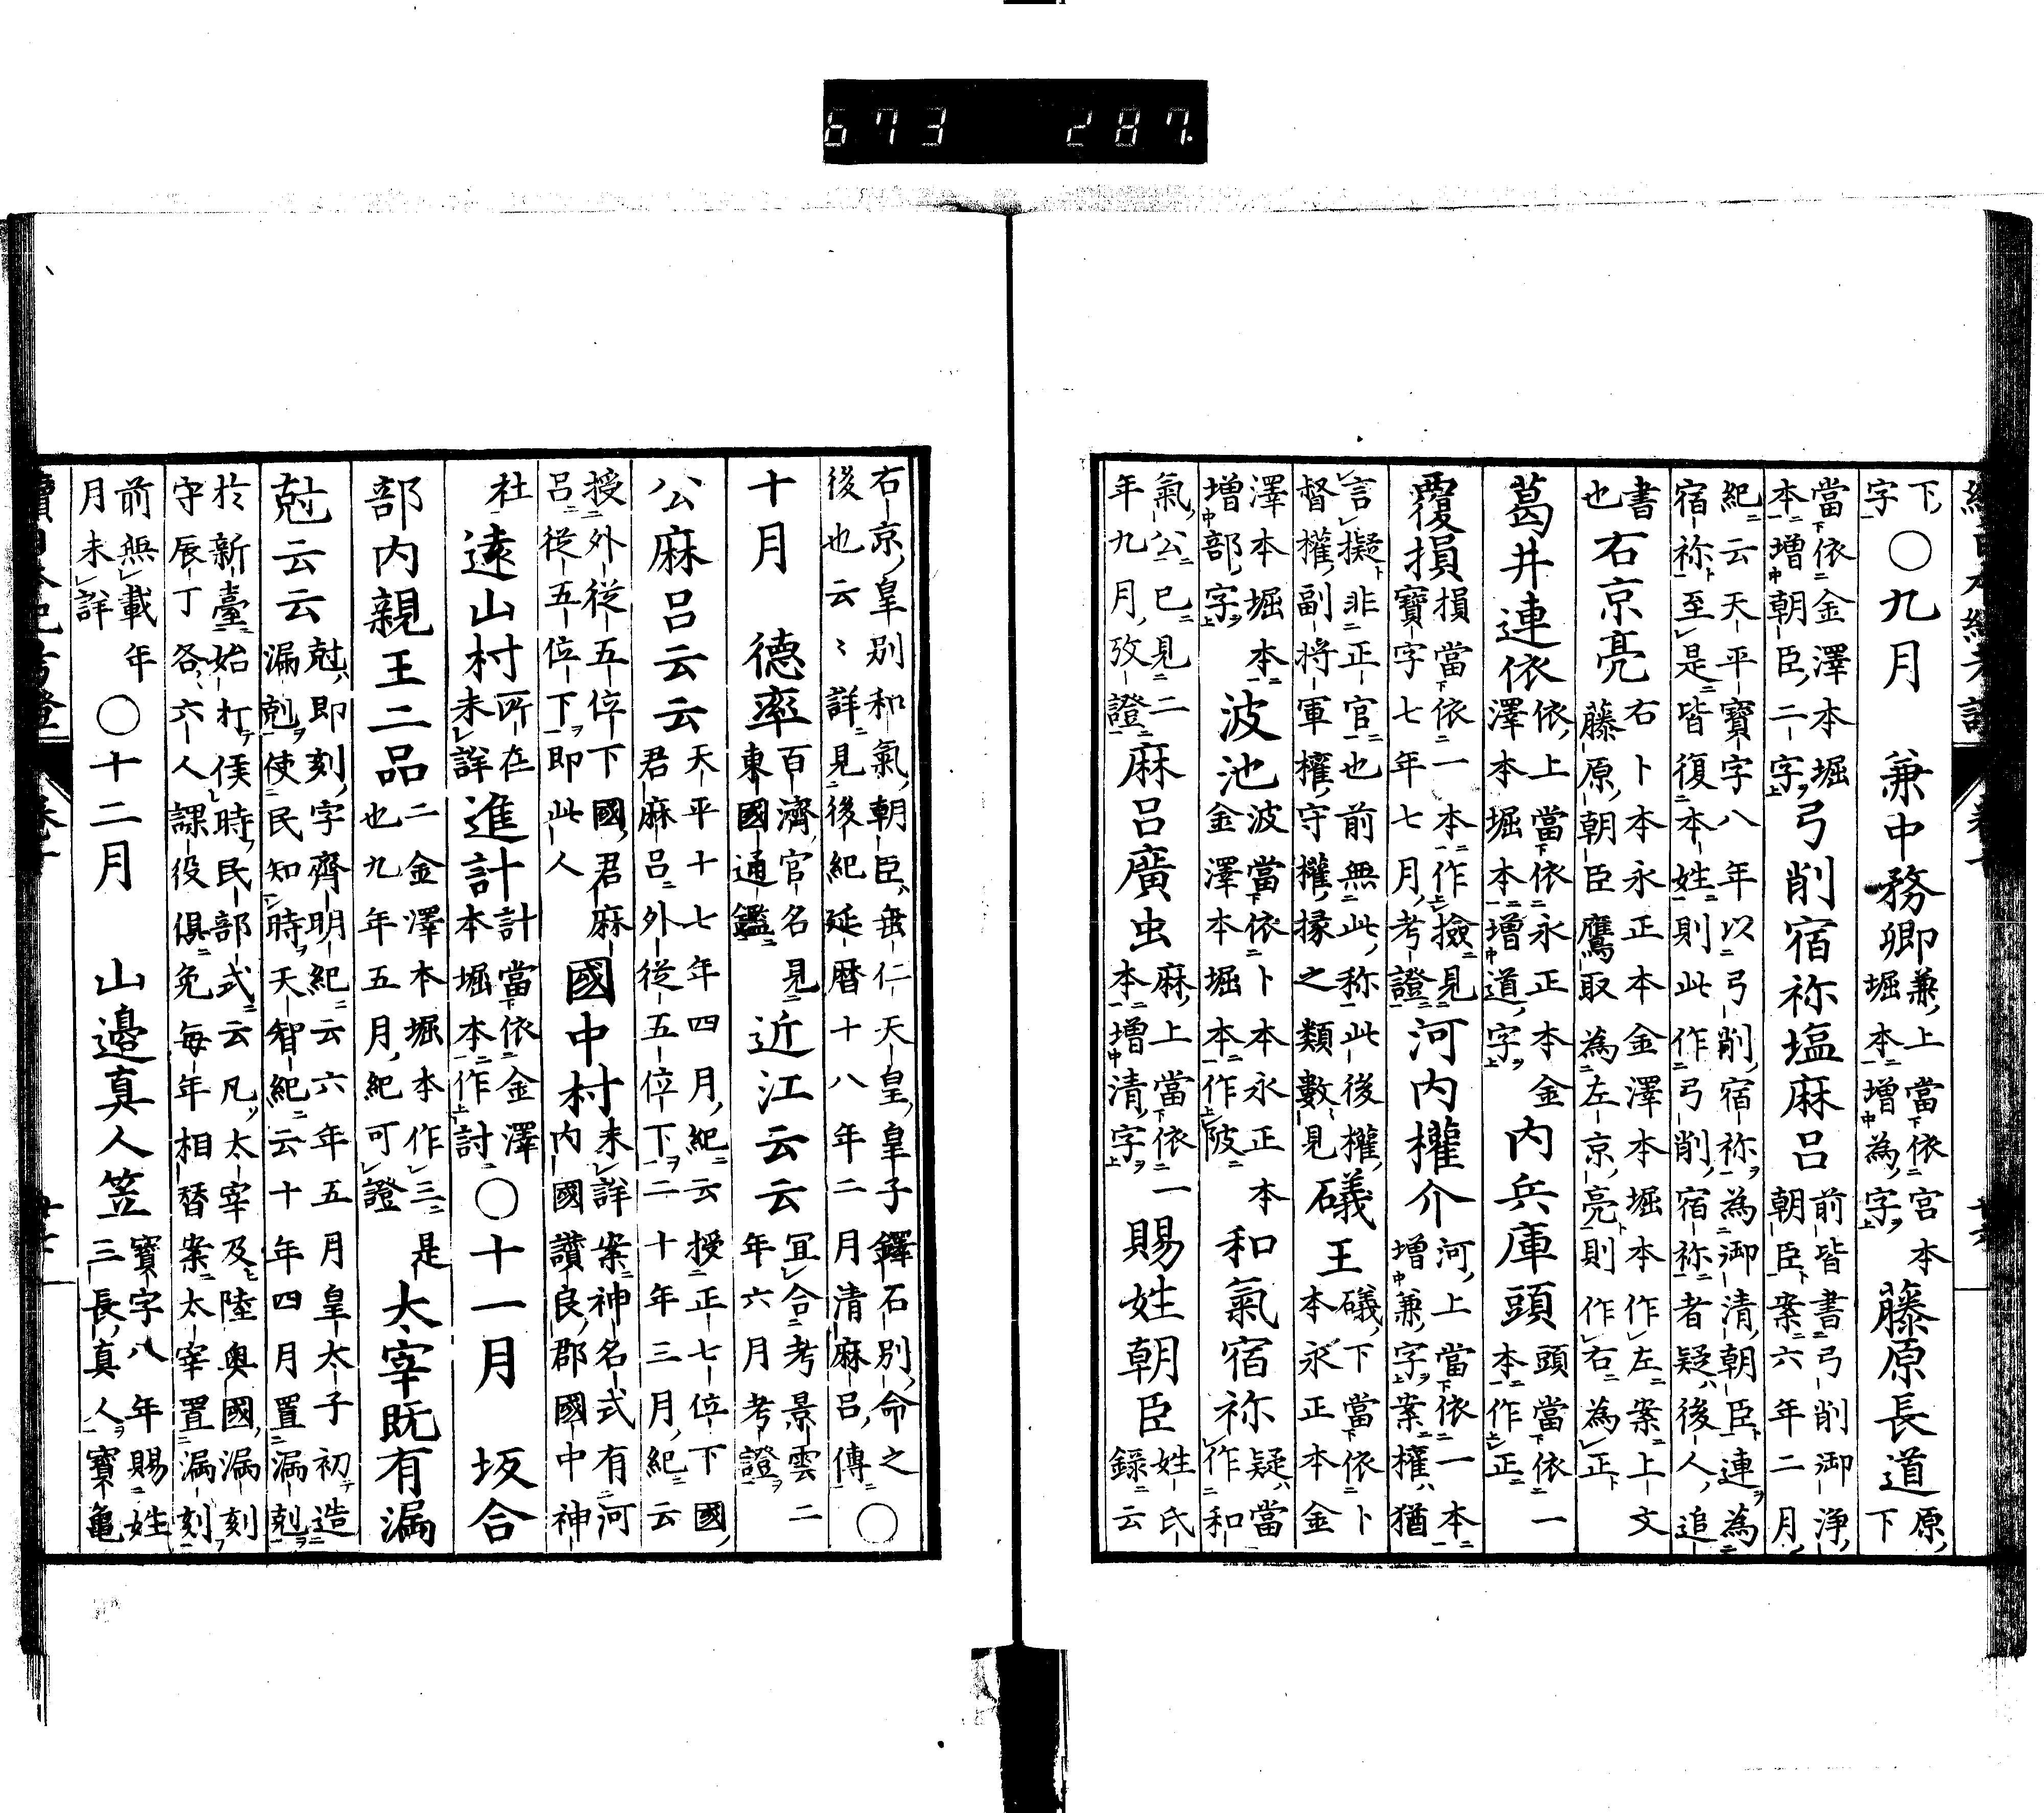 673 287
下、字〇九月 兼中務卿兼上當依宮本堀本增為字藤原長道原下
當依金澤本堀本增朝臣二字弓削宿祢塩麻呂前皆書弓削御浄朝臣案六年二月
紀云天平寶字八年以弓削宿祢為御清朝臣連為宿祢至是皆復本姓則此作弓削宿祢者疑後人追
書也右京亮右卜本永正本金澤本堀本作左案上文藤原朝臣鷹取為左京亮則作右為正
葛井連依依上當依永正本金澤本堀本增道字内兵庫頭頭當依一本作正
覆損損當依一本作撿見寶字七年七月考證河内權介河上當依一本增兼字案權猶
言擬非正官也前無此称此後權督權副将軍權守權掾之類數見礒王礒下當依卜本永正本金
澤本堀本增部字波池波當依卜本永正本金澤本堀本作陂和氣宿祢疑當作和
氣公已見二年九月攷證麻呂廣虫麻上當依一本增清字賜姓朝臣姓氏錄云
右京皇別和氣朝臣垂仁天皇皇子鐸石別命之後也云〻詳見後紀延暦十八年二月清麻呂傳〇
十月 德率百濟官名見東國通鑑近江云云冝合考景雲二年六月考證
公麻呂云云天平十七年四月紀云授正七位下國君麻呂外從五位下二十年三月紀云
授外從五位下國君麻呂從五位下即此人國中村未詳案神名式有河内國讃良郡國中神
社遠山村所在未詳進計計當依金澤本堀本作討〇十一月 坂合
部内親王二品二金澤本堀本作三是也九年五月紀可證大宰既有漏
尅云云尅即刻字齊明紀云六年五月皇太子初造漏尅使民知時天智紀云十年四月置漏尅
於新臺始打候時民部式云凡太宰及陸奥國漏刻守辰丁各六人課役倶免毎年相替案太宰置漏刻
前無載年月未詳〇十二月 山邉真人笠寶字八年賜姓三長真人寶亀